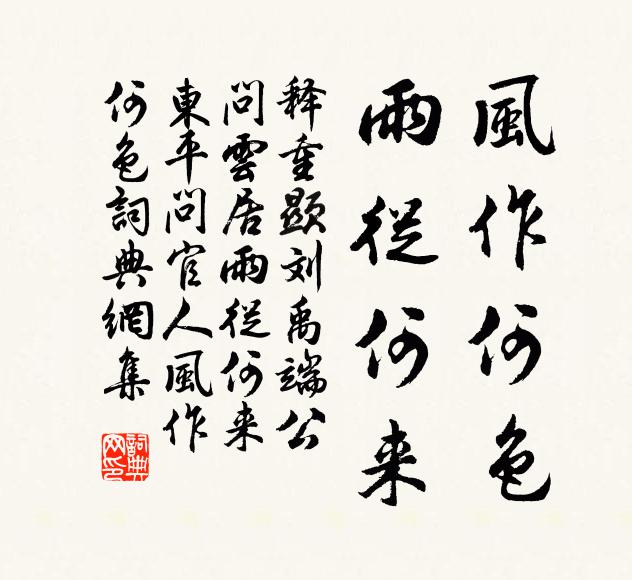 風作何色
雨從何来
释重顯刘禹端公
問雲居雨從何来
東平問官人風作
何色詞典網集
詞典網印